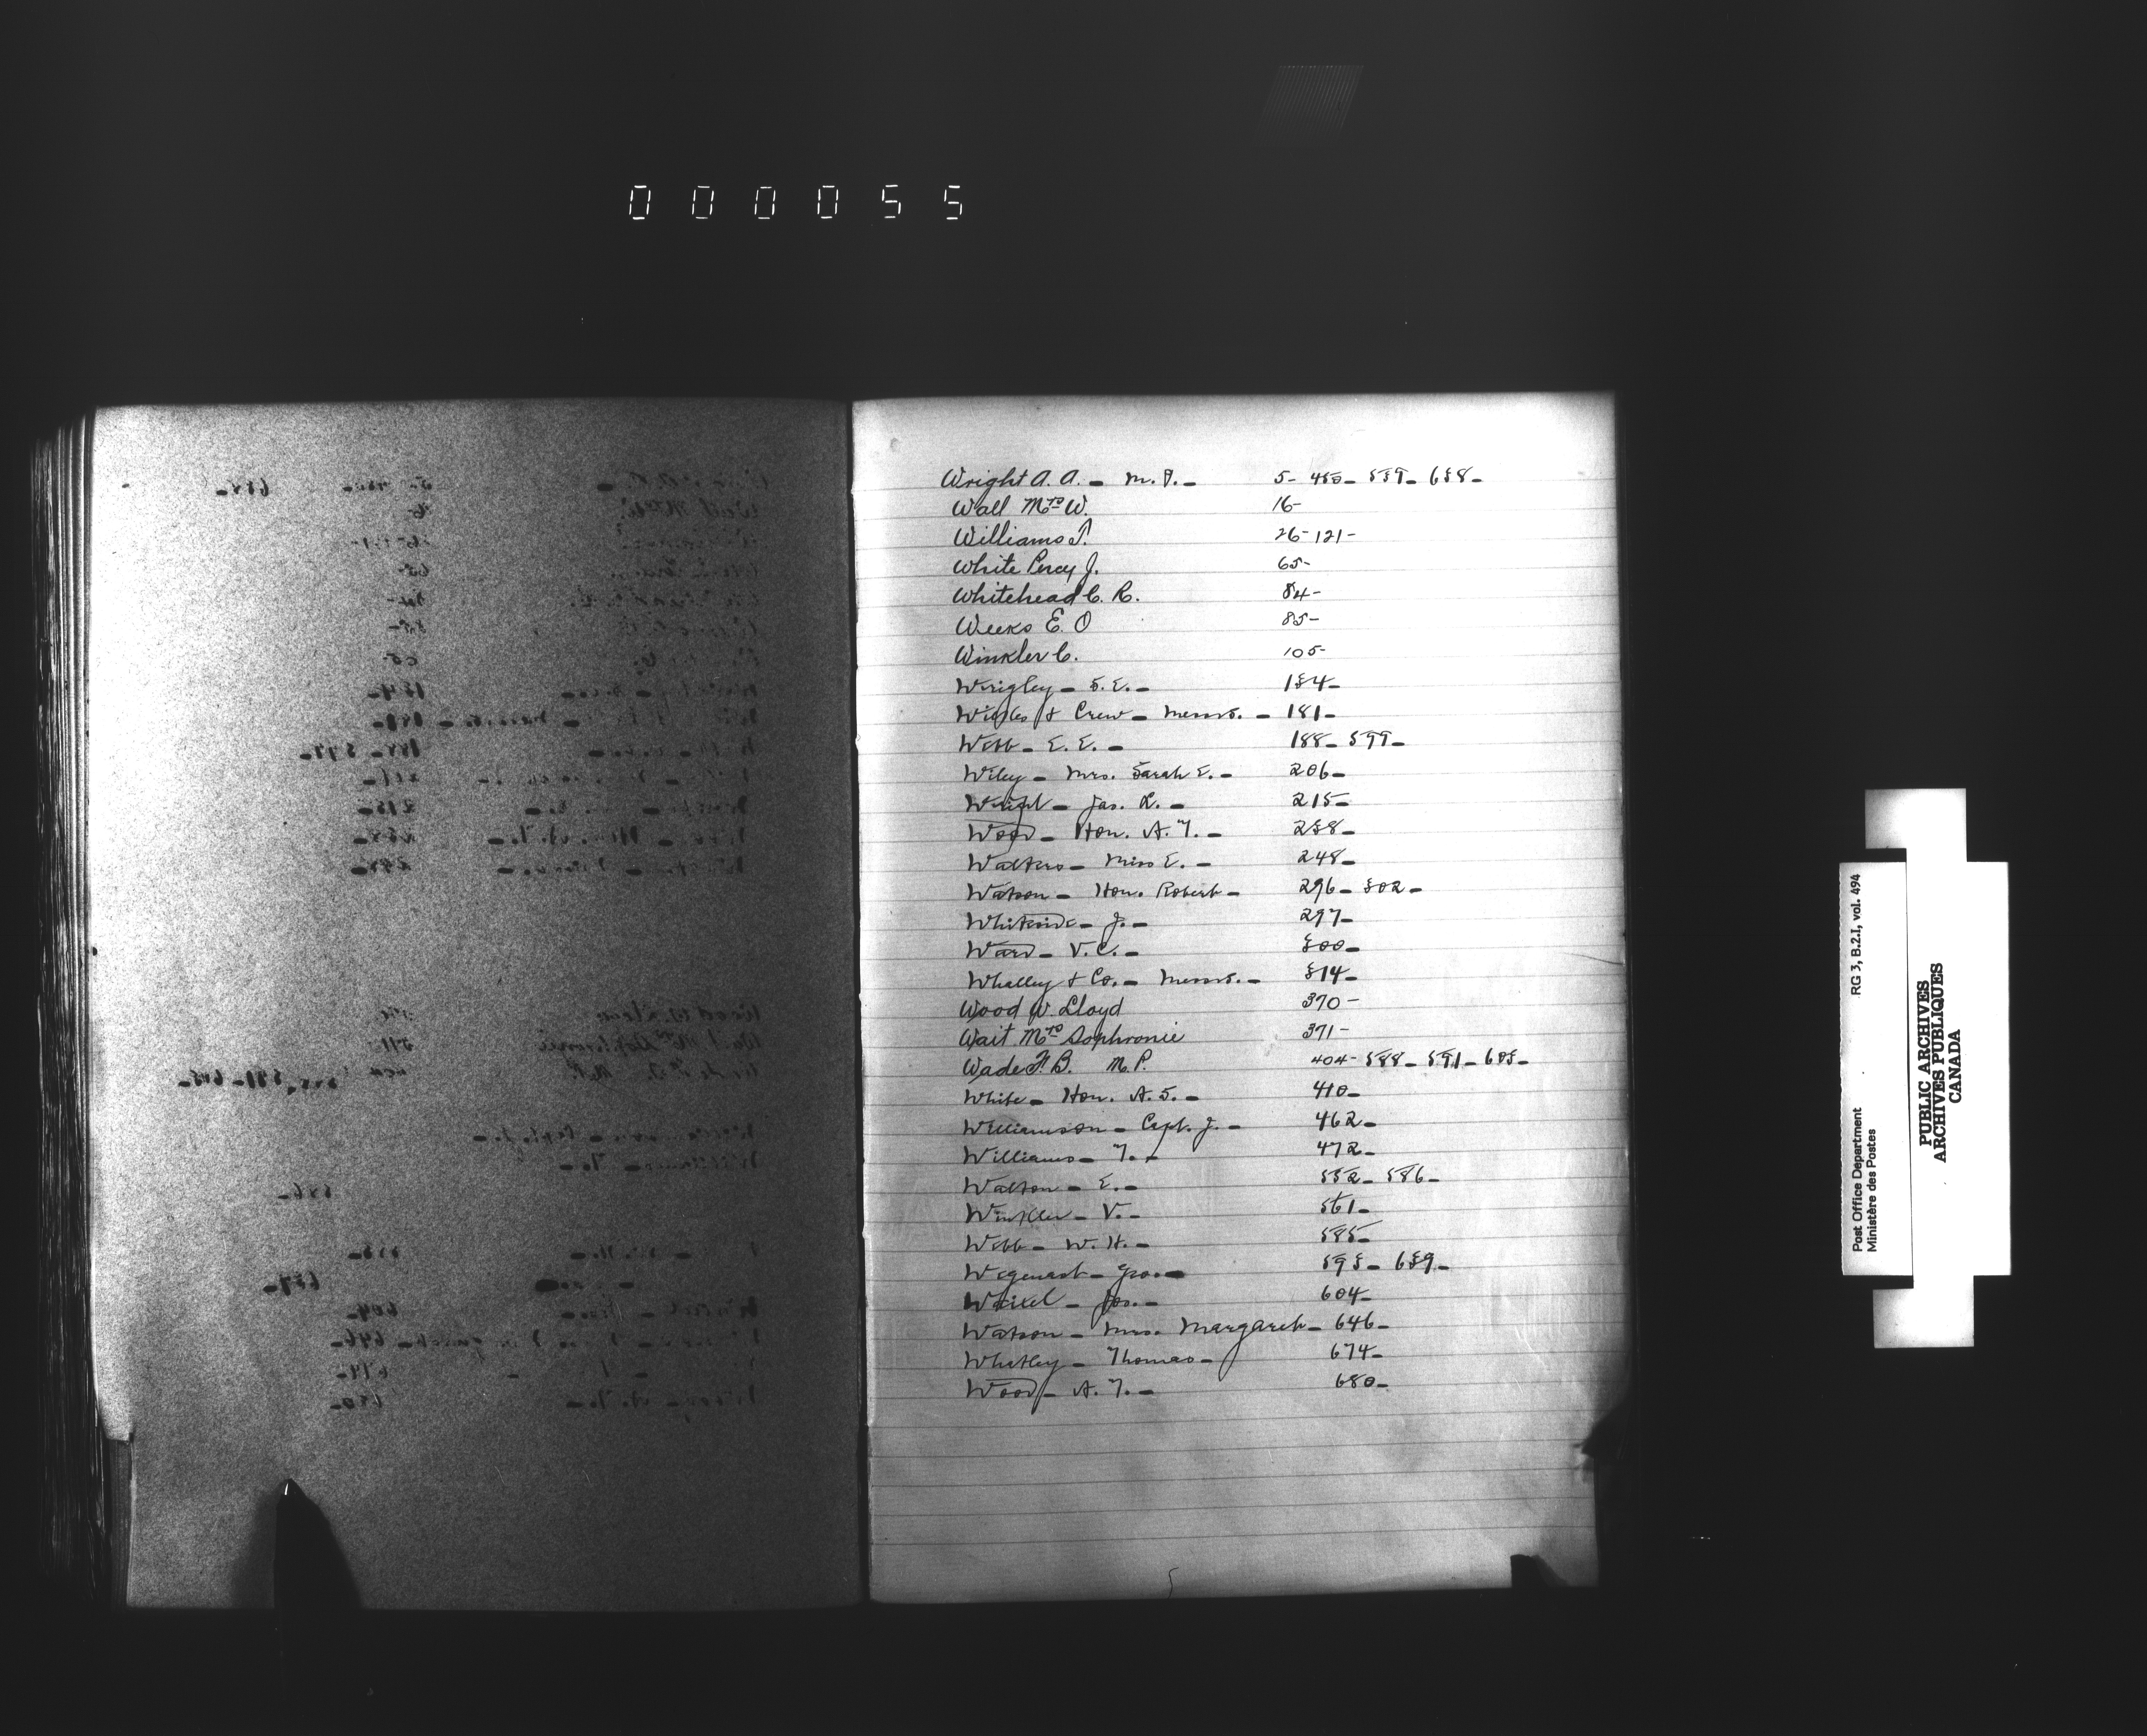 000055
Wright A. A. - M.P. - 5 - 450 - 539 - 638 -
Wall Mrs W. 16 -
Williams J. 26 - 121 -
White Percy J. 65 -
Whitehead C. R. 84 -
Weeks E. O 85 -
Winkler C. 105 -
Wrigley - S. E. - 134 -
& Crew - Messrs. - 181 -
Webb - E. E. - 188 - 599 -
Wiley - Mrs. Sarah E. - 206 -
Jas. L. - 215 -
Wood - Hon. A. T. - 238 -
Walters - Miss E. - 248 -
Watson - Hon. Robert - 296 - 302 -
Whiteside - J. - 297 -
Ward - V. C. - 300 -
Whalley & Co. - Messrs. - 314 -
Wood W. Lloyd 370 -
Wait Mrs Sophronie 371 -
Wade F. B. M.P. 404 - 588 - 591 -
White - Hon. A. S. - 410 -
Williamson - Capt. J. - 462 -
Williams - T. - 472 -
Walton - E. - 552 - 586 -
Winkler - V. - 561 -
Webb - W. H. - 585 -
Wegenast - Geo. - 593 - 639 -
Weixel - Jos. - 604 -
Watson - Mrs. Margaret - 646 -
Whatley - Thomas - 674 -
Wood - A. T. - 680 -
Post Office Department RG 3, B.2.I, vol. 494
Ministère des Postes
PUBLIC ARCHIVES
ARCHIVES PUBLIQUES
CANADA